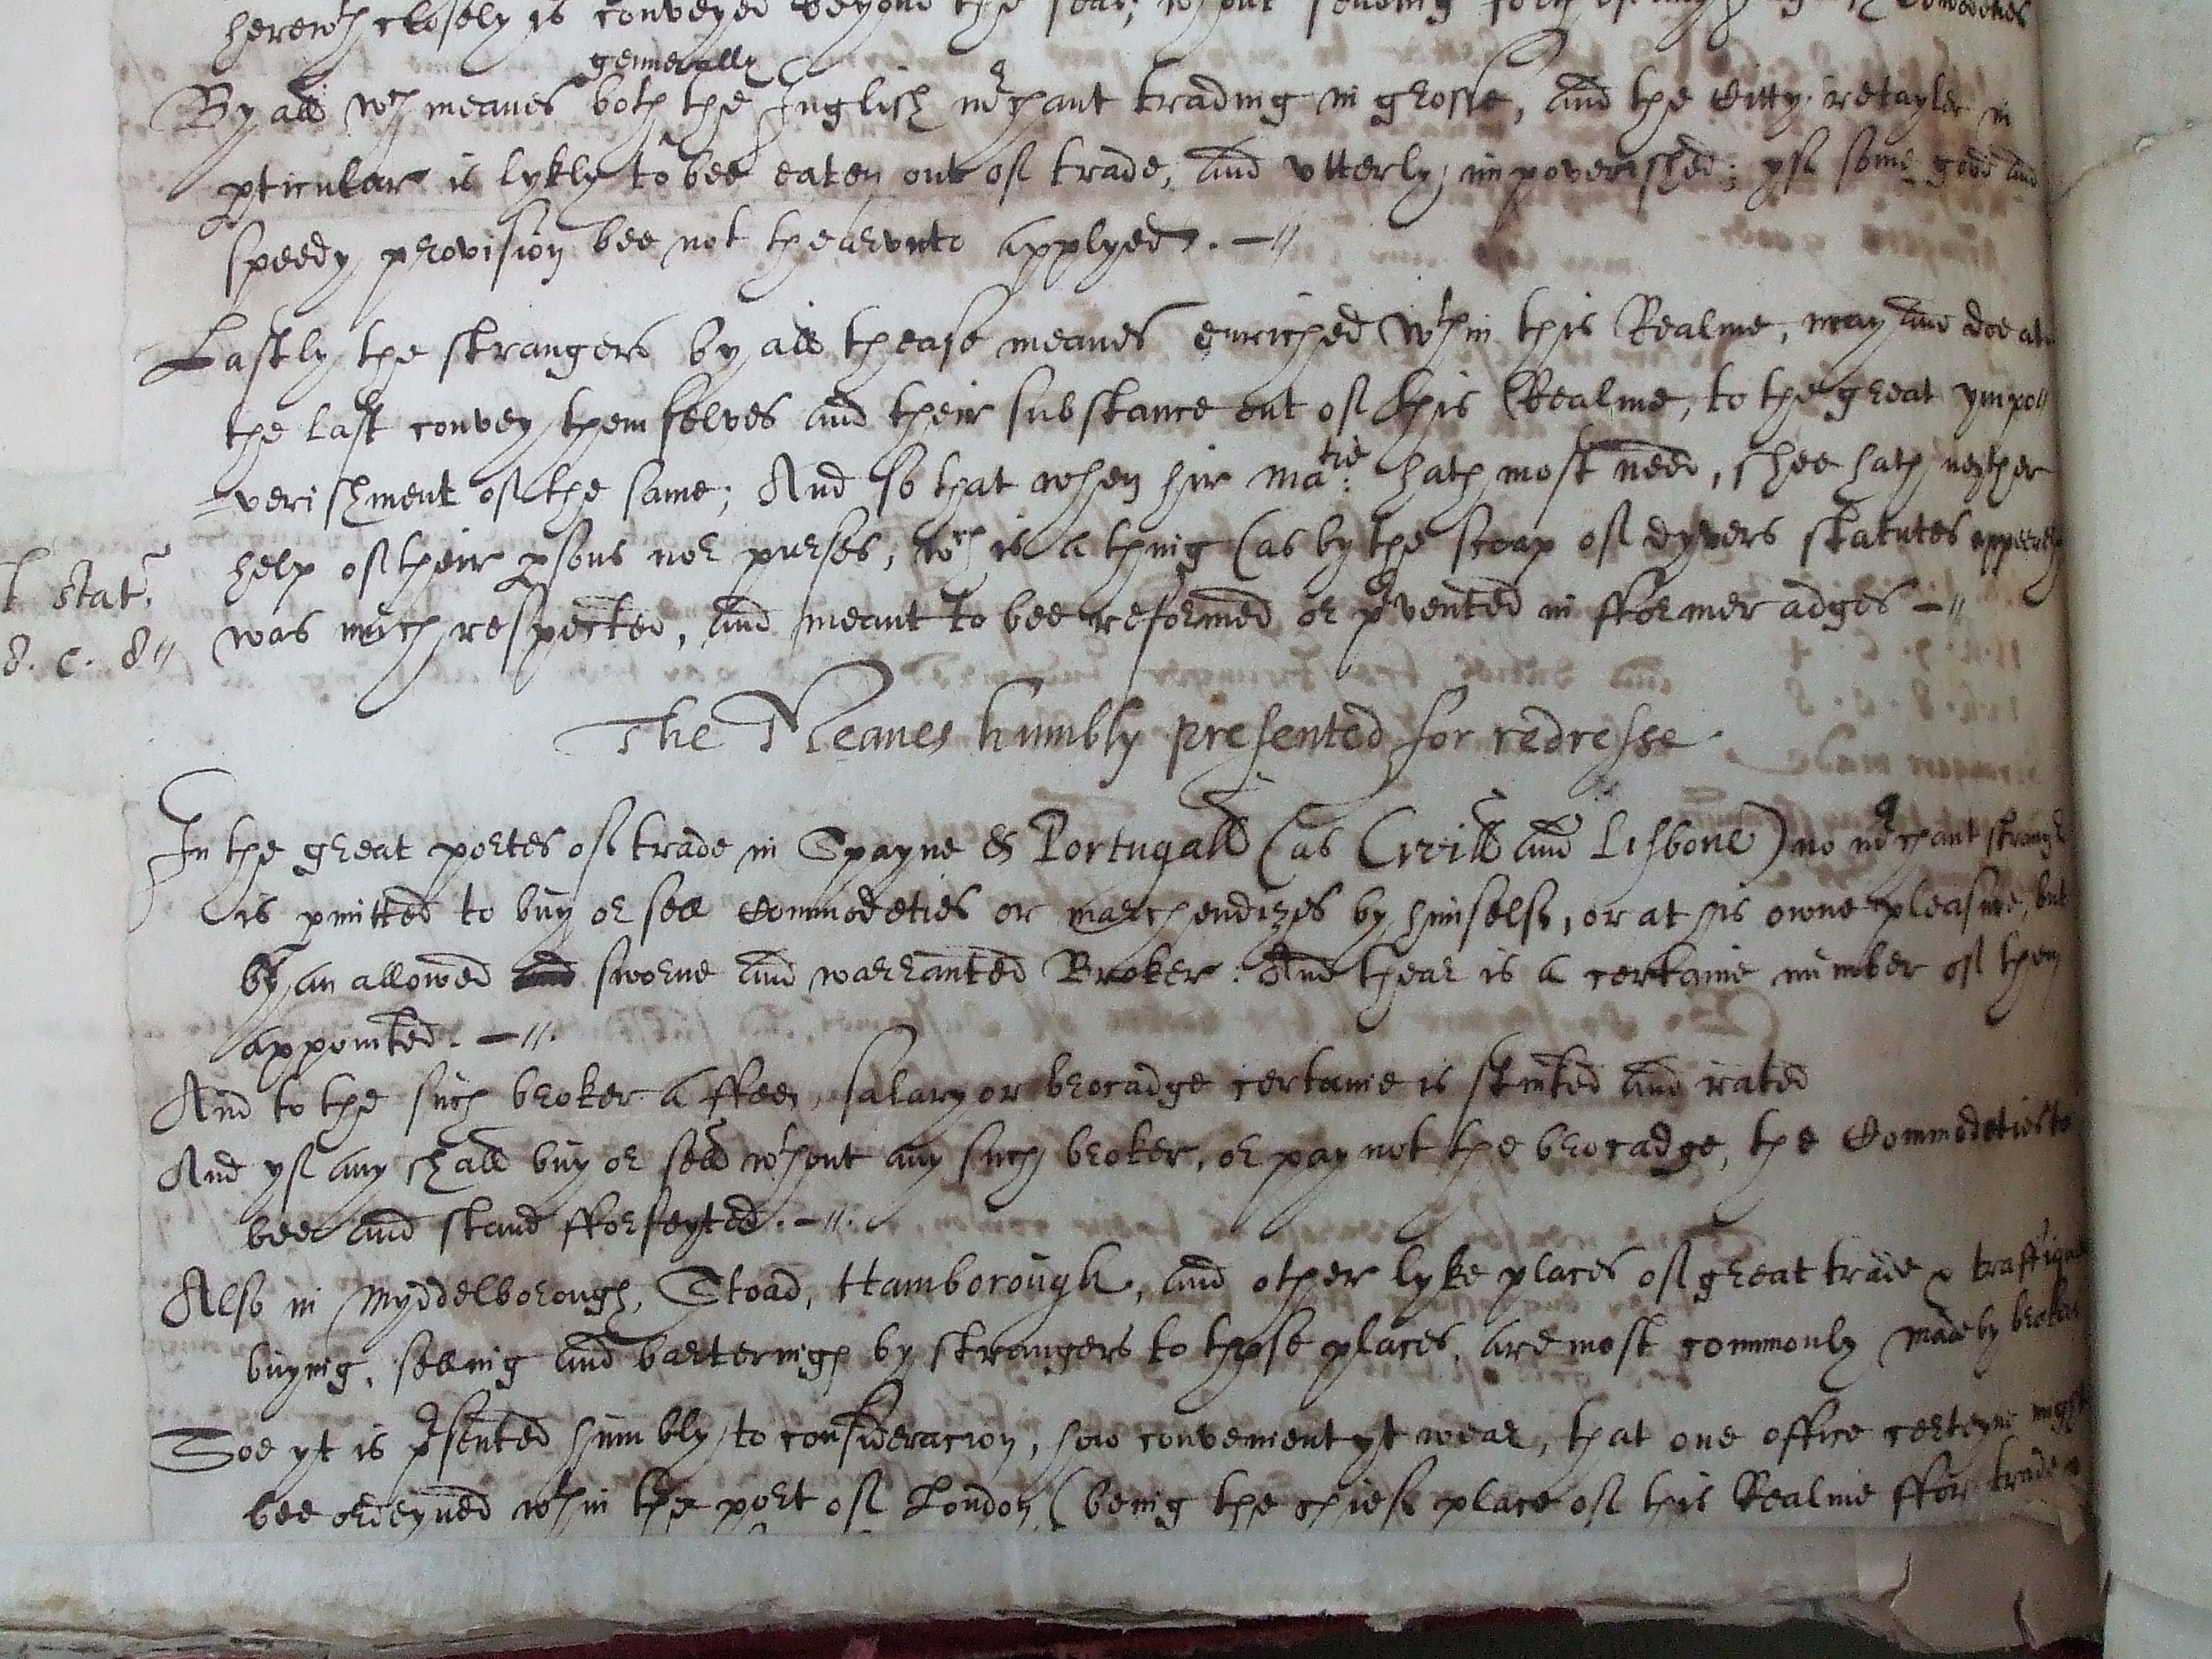 herewth closely is conveyed beyond the seas; wthout sending forth
gennerally
By all wch meanes both the Inglish mrchant trading in grosse, and the Citty retayler in
pticular is lykly to bee eaten out of trade, and vtterly impoverished; yf some good and
speedy provision bee not thearvnto applyed. —//
Lastly the strangers by all thease meanes enriched wthin this Realme, may and doe at
the last convey themselves and their substance out of this Realme, to the great ympo//
-verishment of the same; And so that when hir matie: hath most need, shee hath neyther
help of their psons nor purses, wch is a thing (as by the scoap of dyvers statutes appeereth
was much respected, and meant to bee reformed or prvented in fformer adges —//
stat.
8. c. 8//
The Meanes humbly presented for redresse.
In the great portes of trade in Spayne & Portugall (as Civill and Lisbone) no mrchant strangr
is pmitted to buy or sell Commodeties or marchendizes by himselfe, or at his owne pleasure, but
by an allowed and sworne and warranted Broker. And thear is a certaine number of them
appointed. —//.
And to the such broker a ffee, salary or brocadge certaine is stinted and rated
And yf any shall buy or sell wthout any such broker, or pay not the brocadge, the Commodeties to
bee and stand fforfeyted. —//.
Also in Myddelborough, Stoad, Hamborough, and other lyke places of great trade & traffique
buying, selling and bartering by strangers to those places, are most commonly made by brokers
Soe yt is prsented humbly to consideracion, how convenient yt wear, that one office certeyne might
bee ordeyned wthin the port of London (being the chiefe place of this Realme ffor trade